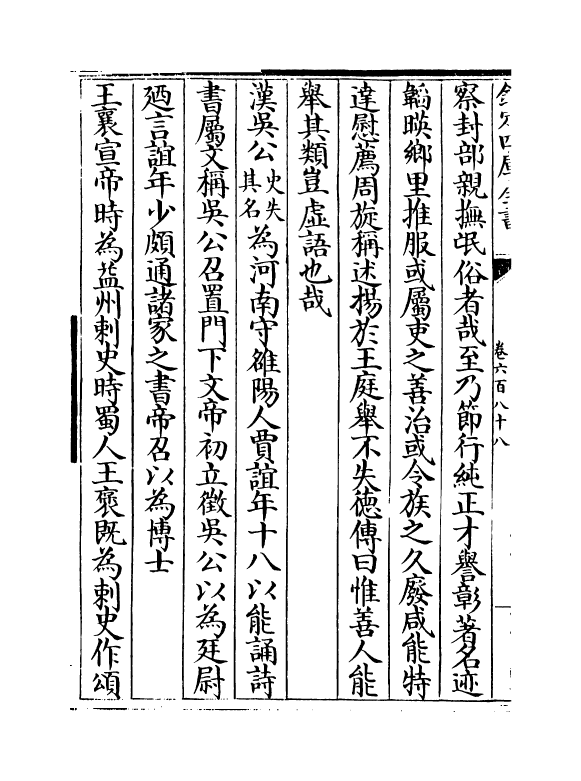 欽定四庫全書
卷六百八十八
察封部親撫氓俗者哉至乃節行純正才譽彰著名迹
韜暎鄉里推服或屬吏之善治或令族之久廢咸能特
達慰薦周旋稱述揚於王庭舉不失徳傳曰惟善人能
舉其類豈虚語也哉
漢吳公史失其名為河南守雒陽人賈誼年十八以能誦詩
書屬文稱吳公召置門下文帝初立徵吳公以為廷尉
廼言誼年少頗通諸家之書帝召以為博士
王襄宣帝時為益州刺史時蜀人王襃既為刺史作頌